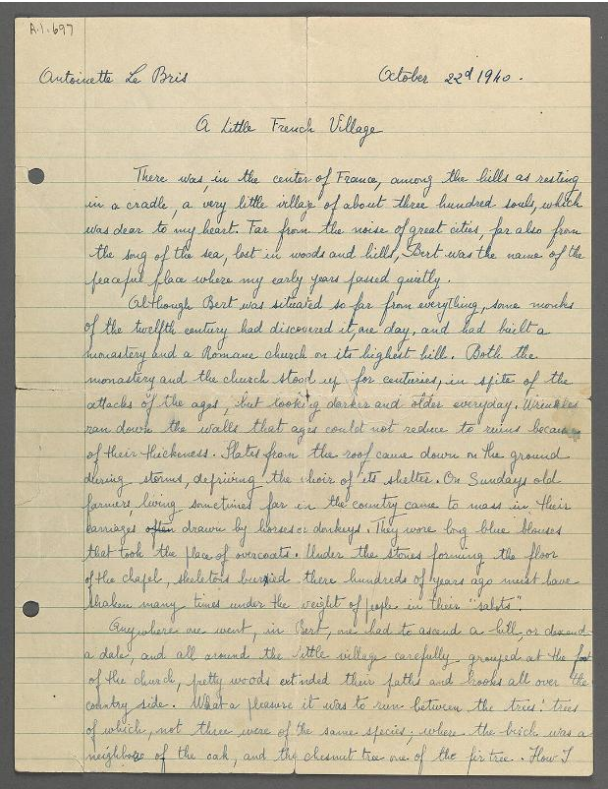 A.1.697
Antoinette Le Bris October 22d 1940.
A Little French Village
There was, in the center of France, among the hills as resting
in a cradle, a very little village of about three hundred souls, which
was dear to my heart. Far from the noise of great cities, far also from
the song of the sea, lost in woods and hills, Bert was the name of the
peaceful place where my early years passed quietly.
Although Bert was situated so far from everything, some monks
of the twelfth century had discovered it, one day, and had built a
monastery and a Romane church on its highest hill. Both the
monastery and the church stood up for centuries, in spite of the
attacks of the ages, but looking darker and older everyday. Wrinkles
ran down the walls that ages could not reduce to ruins because
of their thickness. Slates from the roof came down on the ground
during storms, depriving the choir of its shelter. On Sundays old
farmers, living sometimes far in the country came to mass in their
carriages often drawn by horses or donkeys. They wore long blue blouses
that took the place of overcoats. Under the stones forming the floor
of the chapel, skeletons burried there hundreds of years ago must have
shaken many times under the weight of people in their "sabots".
Anywhere one went, in Bert, one had to ascend a hill, or descend
a dale, and all around the little village carefully grouped at the foot
of the church, pretty woods extended their paths and brooks all over the
country side. What a pleasure it was to run between the trees! trees
of which, not three were of the same species; where the birch was a
neighbor of the oak, and the chesnut tree one of the fir tree. How I